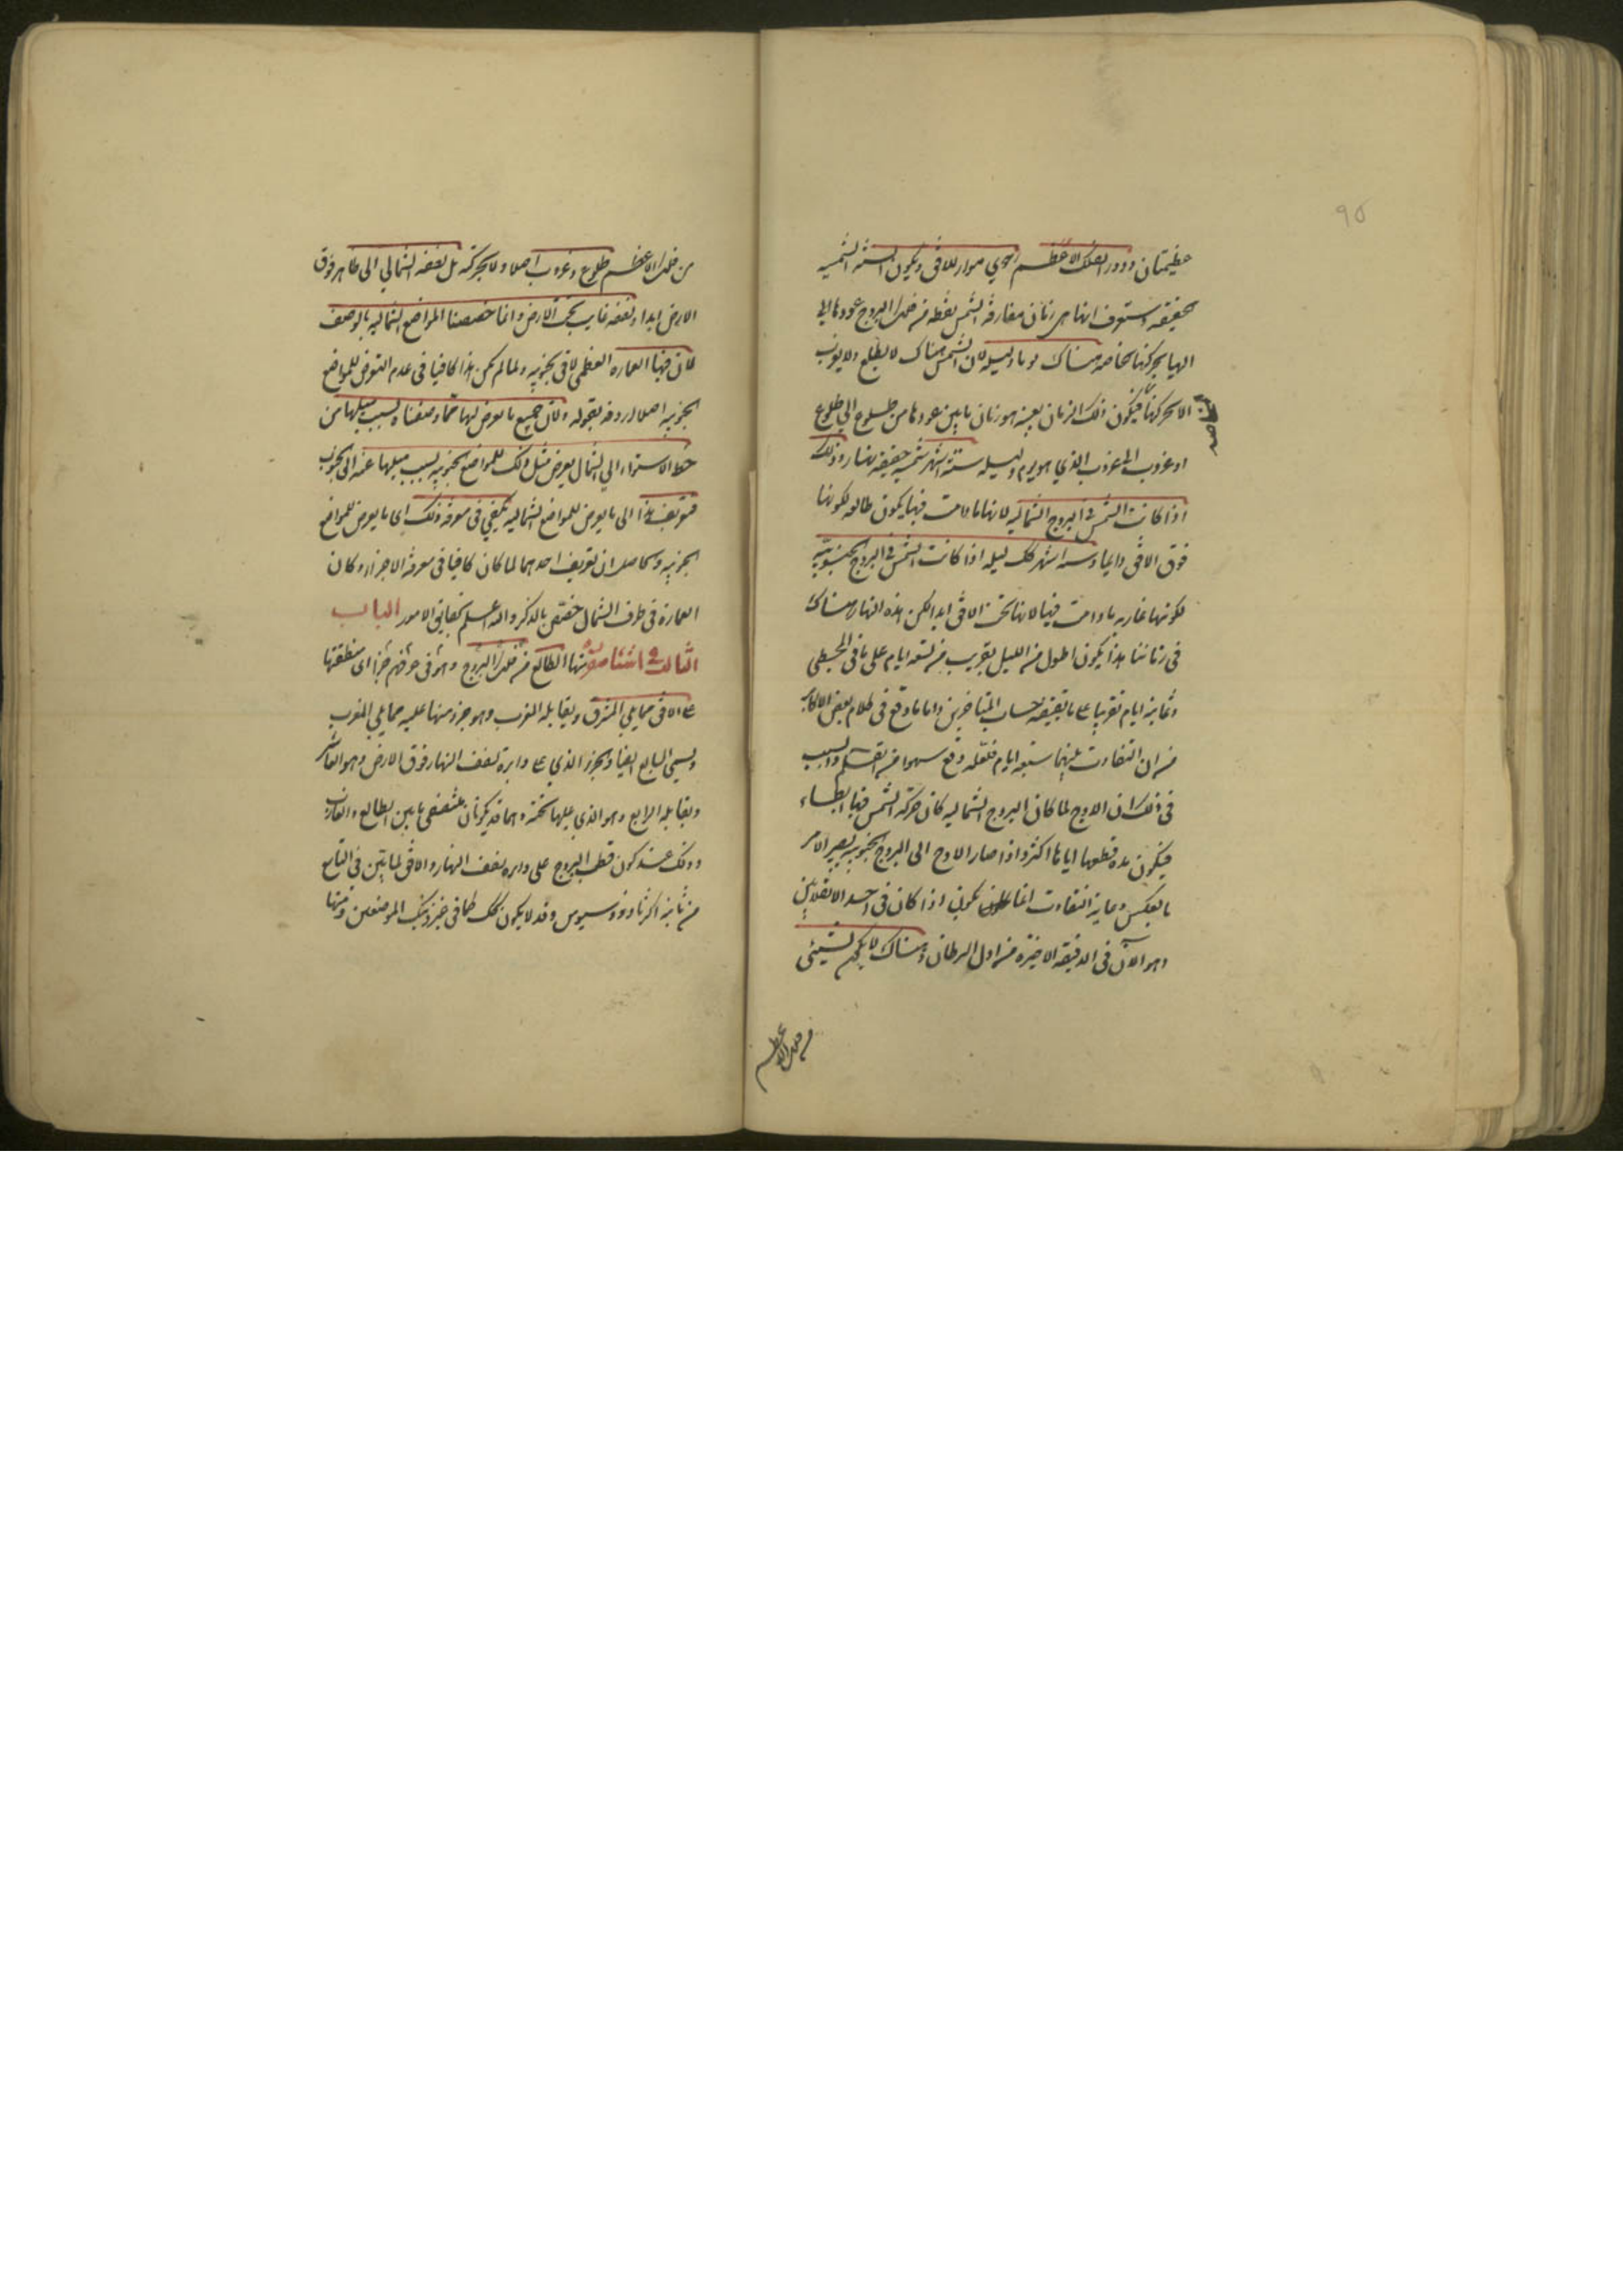 ٩٥
عظيمتان ودور الفلك الاعظم رحوي مواز للافق ويكون السنه الشمسيه
حقيقه وستعرف انها هى زمان مفارقه الشمس نقطه من فلك البروج عودها الى
اليها بحركتها الخاصه هناك يوما وليله لان الشمس هناك لا يطلع ولا يغرب
الا بحركتها فيكون ذلك الزمان بعينه هو زمان ما بين عودها من طلوع الى طلوع
الخاصه
او غروب الى غروب الذي هو يوم وليله ستة اشهر شمسيه حقيقيه نهار وذلك
اذا كانت الشمس فى البروج الشماليه لانها ما دامت فيها يكون طالعه لكونها
فوق الافق دايما وستة اشهر كك ليله اذا كانت الشمس فى البروج الجنوبيه
لكونها غاربه ما دامت فيها لانها تحت الافق ابدا لكن هذه النهار هناك
فى زماننا هذا يكون اطول من الليل بقريب من تسعه ايام على ما فى المجسطي
وثمانيه ايام تقريبا على ما يقتضيه حساب المتاخرين واما ما وقع فى كلام بعض الاكابر
من ان التفاوت بينهما سبعه ايام فلعله وقع سهوا من القلم والسبب
فى ذلك ان الاوج لما كان البروج الشماليه كان حركه الشمس فيها ابطاء
فيكون مدة قطعها اياها اكثر واذا صار الاوج الى البروج الجنوبيه يصير الامر
بالعكس وغاية التفاوت انما يكون اذا كان فى احد الانقلابين
وهو الآن فى الدقيقه الاخيره من اول السرطان وهناك لا يكون لشيئ
من فلك الاعظم
من فلك الاعظم طلوع وغروب اصلا ولا بحركته بل نصفه الشمالي الى ظاهر فوق
الارض ابدا ونصفه غايب تحت الارض وانما خصصنا المواضع الشماليه بالوصف
لان فيها العماره العظمى لا فى الجنوبيه ولما لم يكن هذا كافيا فى عدم التعرض للمواضع
الجنوبيه اصلا اردفه بقوله ولان جميع ما يعرض لها مما وصفناه بسبب ميلها من
خط الاستواء الى الشمال يعرض مثل ذلك للمواضع الجنوبيه بسبب ميلها عنه الى الجنوب
فتعريف هذا الى ما يعرض للمواضع الشماليه يكفي فى معرفه ذلك اى ما يعرض للمواضع
الجنوبيه والحاصل ان تعريف احدهما لما كان كافيا فى معرفه الاخر وكان
العماره فى طرف الشمال خصص بالذكر والله اعلم بحقايق الامور الباب
الثالث فى اشيا منها الطالع من فلك البروج وهو فى عرفهم جزء اى منطقتها
على الافق مما يلى المشرق ويقابله الغرب وهو جزء منها عليه مما يلى المغرب
ويسمى السابع ايضا والجزء الذى على دايره نصف النهار فوق الارض وهو العاشر
ويقابله الرابع وهو الذى عليها تحته وهما قد يكونان منتصفى ما بين الطالع والغارب
وذلك عند كون قطب البروج على دايره نصف النهار والافق لما تبين فى التاسع
من ثانية اكر ثاوذوسيوس وقد لا يكون كك كما فى غير ذينك الموضعين ومنها